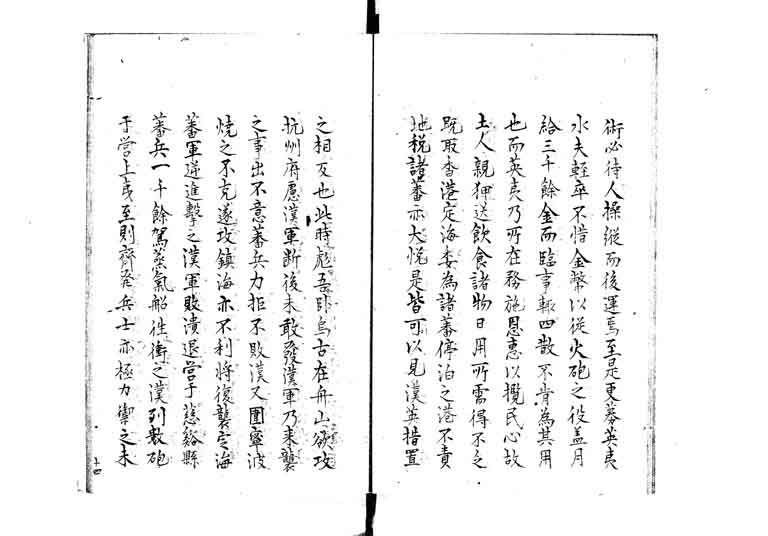 術必待人操縱而後運焉至是更募英夷
水夫輕卒不惜金幣以從火砲之役盖月
給三千餘金而臨事輙四散不肯為其用
也而英夷乃所在務施恩惠以攬民心故
土人親狎送飲食諸物日用所需得不乏
既取香港定海委為諸蕃停泊之港不責
地税諸蕃亦大悦是皆可以見漢英措置
之相反也此時彪吾卧烏古在舟山欲攻
杭州府慮漢軍断後未敢發漢軍乃来襲
之事出不意蕃兵力拒不敗漢又圍寧波
燒之不克遂攻鎮海亦不利將復襲定海
蕃軍逆進擊之漢軍敗潰退營于慈谿縣
蕃兵一千餘駕蒸氣船徃衝之漢列數砲
于營上夷至則齊発兵士亦極力禦之未
十四